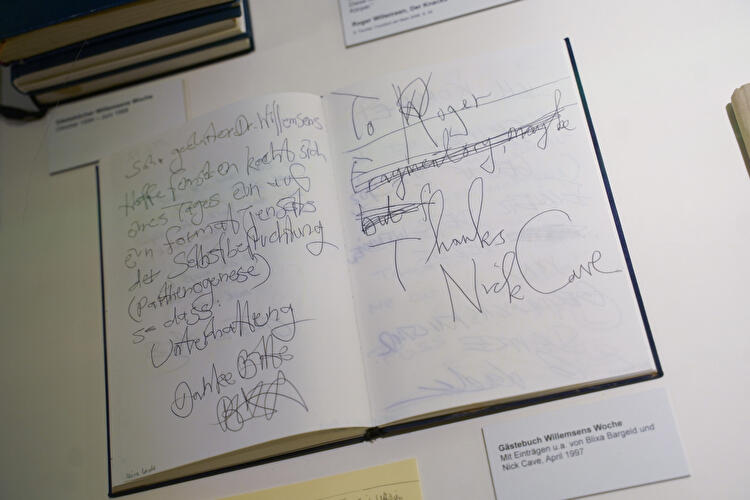 Roger Willemsen, Der Knacks
Gästebücher Willemsens Woche
Sehr geehrter Dr. Willemsens
Hoffe fürst en kocht sich
eines Tages ein auf
ein Format jenseits
der Selbstbefruchtung
(Parthenogenese)
so dass:
Unterhaltung
Danke Bitte
To Roger
Fragmentary, maybe
but
Thanks
Nick Cave
Gästebuch Willemsens Woche
Mit Einträgen u.a. von Blixa Bargeld und
Nick Cave, April 1997